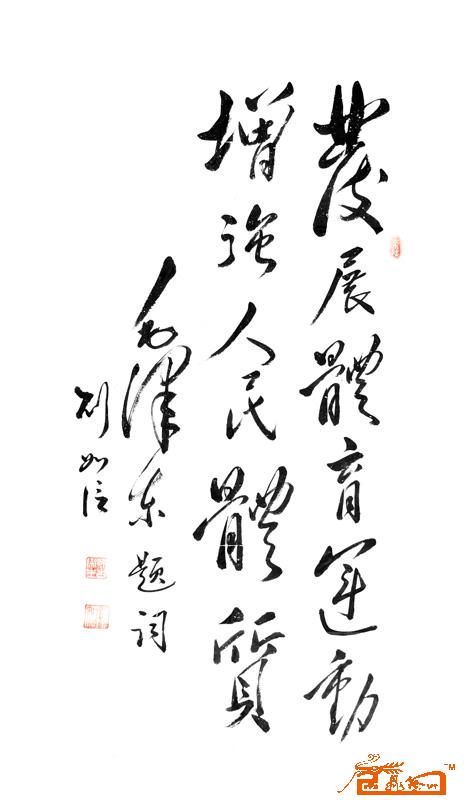 發展體育運動
增強人民體質
毛澤東題词
刘如信